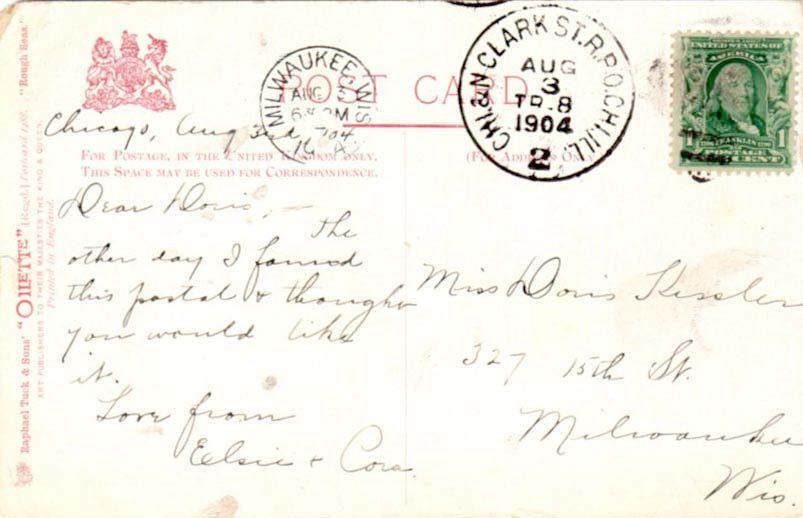 POST CARD
MILWAUKEE, WIS.
AUG 3
CHI. & N. CLARK ST. R.P.O. CHI, ILL.
AUG
3
TR. 8
1904
2
UNITED STATES OF
AMERICA
FRANKLIN
1
POSTAGE
CENT
Chicago, Aug 3rd, '04
FOR POSTAGE, IN THE UNITED KINGDOM ONLY,
THIS SPACE MAY BE USED FOR CORRESPONDENCE.
(FOR ADDRESS ONLY
Dear Doris, –
The
other day I found
this postal & thought
you would like
it.
Love from
Elsie & Cora.
Miss Doris Kessler
327 15th St.
Milwaukee
Wis.
Raphael Tuck & Sons' "OILETTE" [Regd.] Postcard "Rough Seas."
ART PUBLISHERS TO THEIR MAJESTIES THE KING & QUEEN.
Printed in England.